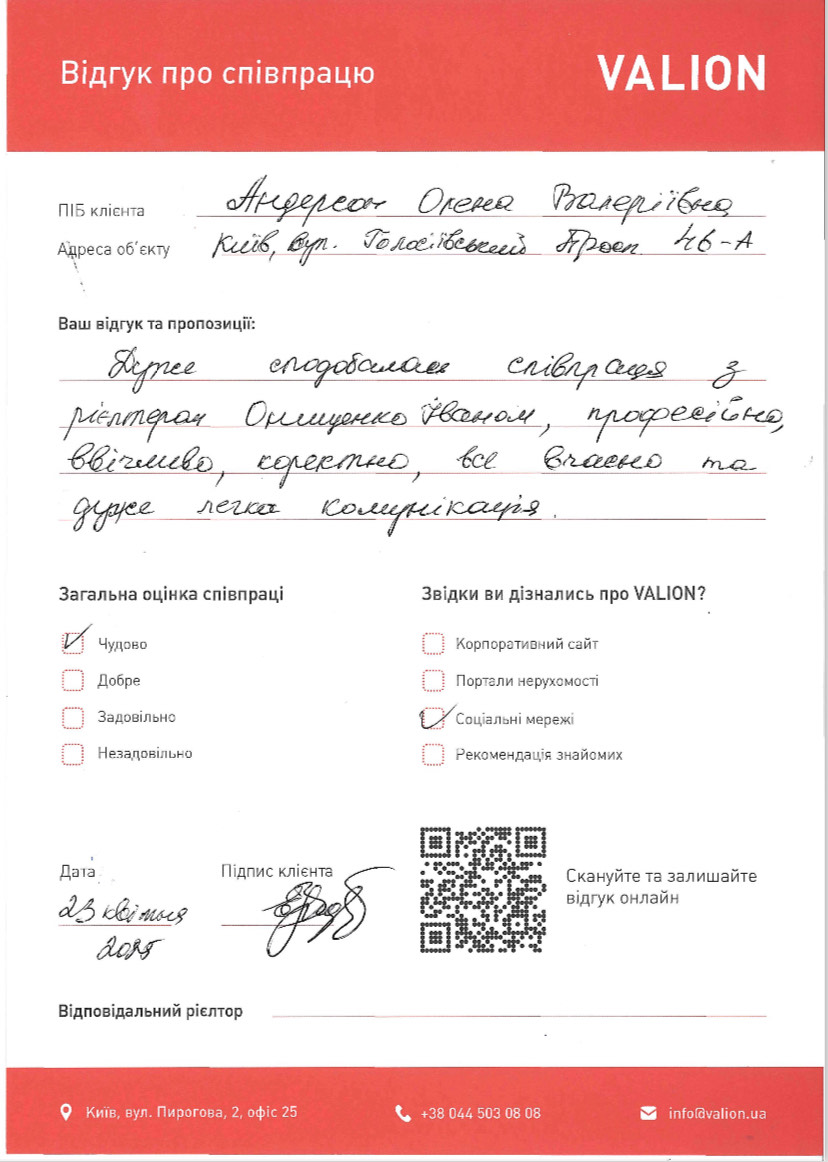 Відгук про співпрацю
VALION
ПІБ клієнта Андерсон Олена Валеріївна
Адреса об'єкту Київ, вул. Голосіївський Просп. 46-А
Ваш відгук та пропозиції:
Дуже сподобалась співпраця з
рієлтером Онищенко Іваном, професійно,
ввічливо, коректно, все вчасно та
дуже легка комунікація.
Загальна оцінка співпраці
Чудово
Добре
Задовільно
Незадовільно
Звідки ви дізнались про VALION?
Корпоративний сайт
Портали нерухомості
Соціальні мережі
Рекомендація знайомих
Дата
23 квітня
2025
Підпис клієнта
Скануйте та залишайте
відгук онлайн
Відповідальний рієлтор
Київ, вул. Пирогова, 2, офіс 25
+38 044 503 08 08
info@valion.ua